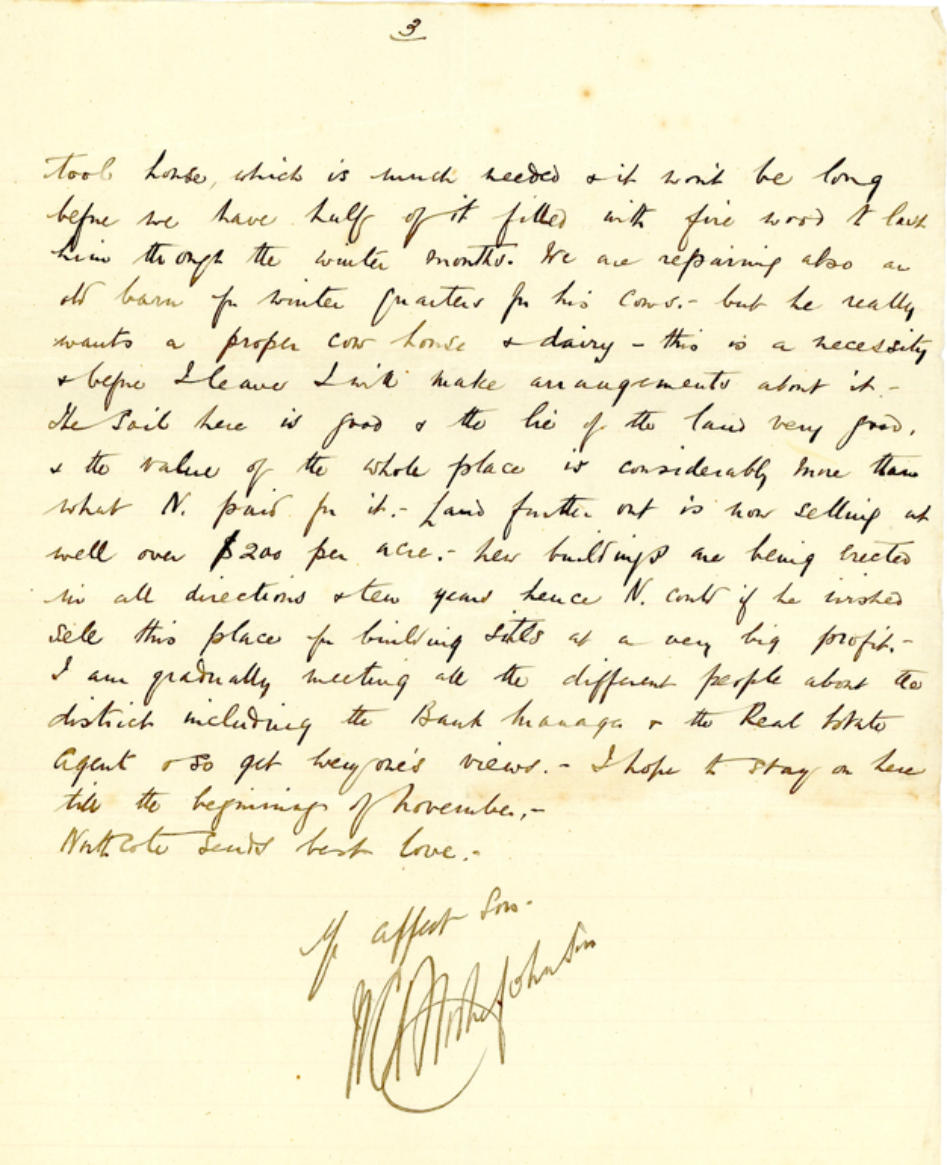 3
tool house, which is much needed & it won't be long
before we have half of it filled with fire wood to last
him through the winter months. We are repairing also an
old barn for winter quarters for his cows. - but he really
wants a proper cow house & dairy - this is a necessity
& before I leave I will make arrangements about it -
The soil here is good & the lie of the land very good,
& the value of the whole place is considerably more than
what N. paid for it. - Land further out is now selling at
well over $200 per acre. - new buildings are being erected
in all directions & ten years hence N. could if he wished
sell this place for building sites at a very big profit. -
I am gradually meeting all the different people about the
district including the Bank Manager & the Real Estate
Agent & so get everyone's views. - I hope to stay on here
till the beginning of November. -
Northcote sends best love. -
Yr affect Son -
Johnson